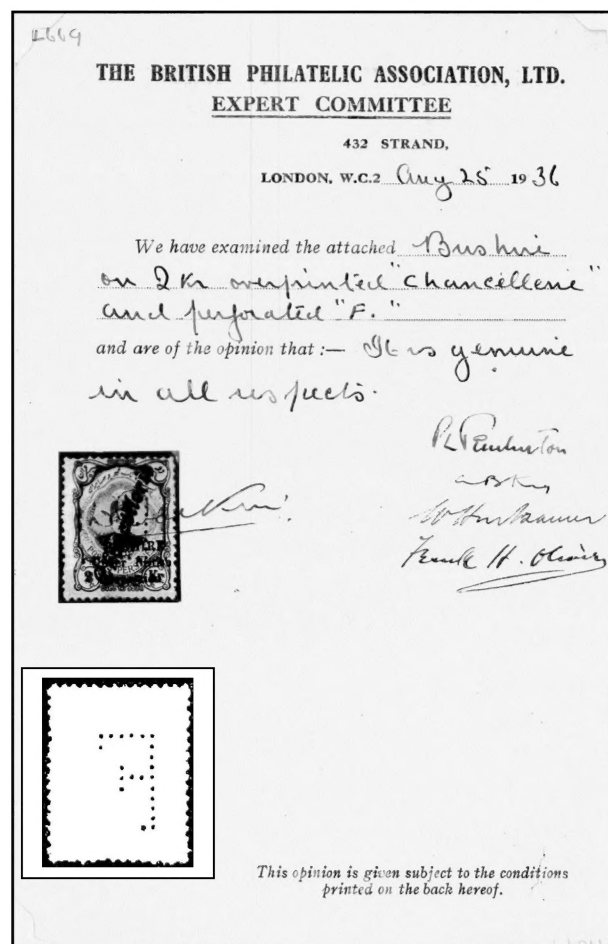 4669
THE BRITISH PHILATELIC ASSOCIATION, LTD.
EXPERT COMMITTEE
432 STRAND,
LONDON, W.C.2 Aug 25 1936
We have examined the attached Bushire
on 2 Kr overprinted "Chancellerie"
and perforated "F."
and are of the opinion that :— It is genuine
in all respects.
PL Pemberton
Frank H. Oliver
2 Kr
This opinion is given subject to the conditions
printed on the back hereof.